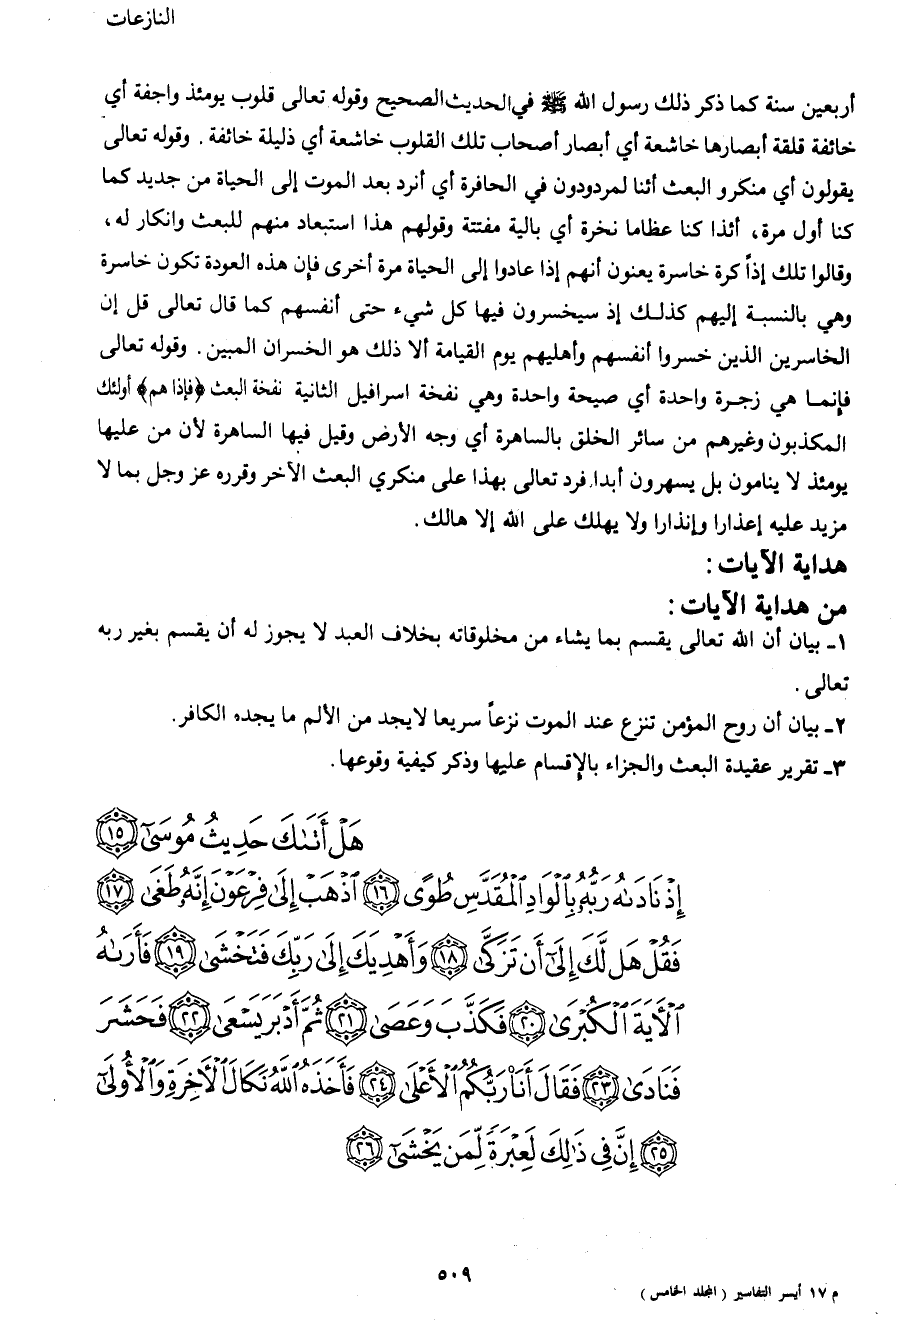 النازعات
أربعين سنة كما ذكر ذلك رسول الله ﷺ في الحديث الصحيح وقوله تعالى قلوب يومئذ واجفة أي
خائفة قلقة أبصارها خاشعة أي أبصار أصحاب تلك القلوب خاشعة أي ذليلة خائفة . وقوله تعالى
يقولون أي منكرو البعث أئنا لمردودون في الحافرة أي أنرد بعد الموت إلى الحياة من جديد كما
كنا أول مرة، أئذا كنا عظاما نخرة أي بالية مفتتة وقولهم هذا استبعاد منهم للبعث وانكار له،
وقالوا تلك إذاً كرة خاسرة يعنون أنهم إذا عادوا إلى الحياة مرة أخرى فإن هذه العودة تكون خاسرة
وهي بالنسبة إليهم كذلك إذ سيخسرون فيها كل شيء حتى أنفسهم كما قال تعالى قل إن
الخاسرين الذين خسروا أنفسهم وأهليهم يوم القيامة ألا ذلك هو الخسران المبين. وقوله تعالى
فإنما هي زجرة واحدة أي صيحة واحدة وهي نفخة اسرافيل الثانية نفخة البعث ﴿فإذا هم﴾ أولئك
المكذبون وغيرهم من سائر الخلق بالساهرة أي وجه الأرض وقيل فيها الساهرة لأن من عليها
يومئذ لا ينامون بل يسهرون أبدا، فرد تعالى بهذا على منكري البعث الآخر وقرره عز وجل بما لا
مزيد عليه إعذارا وإنذارا ولا يهلك على الله إلا هالك.
هداية الآيات :
من هداية الآيات :
١ـ بيان أن الله تعالى يقسم بما يشاء من مخلوقاته بخلاف العبد لا يجوز له أن يقسم بغير ربه
تعالى.
٢ـ بيان أن روح المؤمن تنزع عند الموت نزعاً سريعا لايجد من الألم ما يجده الكافر.
٣ـ تقرير عقيدة البعث والجزاء بالإقسام عليها وذكر كيفية وقوعها.
هَلْ أَتَىٰكَ حَدِيثُ مُوسَىٰٓ ١٥
إِذْ نَادَىٰهُ رَبُّهُۥ بِٱلْوَادِ ٱلْمُقَدَّسِ طُوًى ١٦ ٱذْهَبْ إِلَىٰ فِرْعَوْنَ إِنَّهُۥ طَغَىٰ ١٧
فَقُلْ هَل لَّكَ إِلَىٰٓ أَن تَزَكَّىٰ ١٨ وَأَهْدِيَكَ إِلَىٰ رَبِّكَ فَتَخْشَىٰ ١٩ فَأَرَىٰهُ
ٱلْءَايَةَ ٱلْكُبْرَىٰ ٢٠ فَكَذَّبَ وَعَصَىٰ ٢١ ثُمَّ أَدْبَرَ يَسْعَىٰ ٢٢ فَحَشَرَ
فَنَادَىٰ ٢٣ فَقَالَ أَنَا۠ رَبُّكُمُ ٱلْأَعْلَىٰ ٢٤ فَأَخَذَهُ ٱللَّهُ نَكَالَ ٱلْءَاخِرَةِ وَٱلْأُولَىٰٓ
٢٥ إِنَّ فِى ذَٰلِكَ لَعِبْرَةً لِّمَن يَخْشَىٰٓ ٢٦
٥٠٩
م ١٧ أيسر التفاسير ( المجلد الخامس )